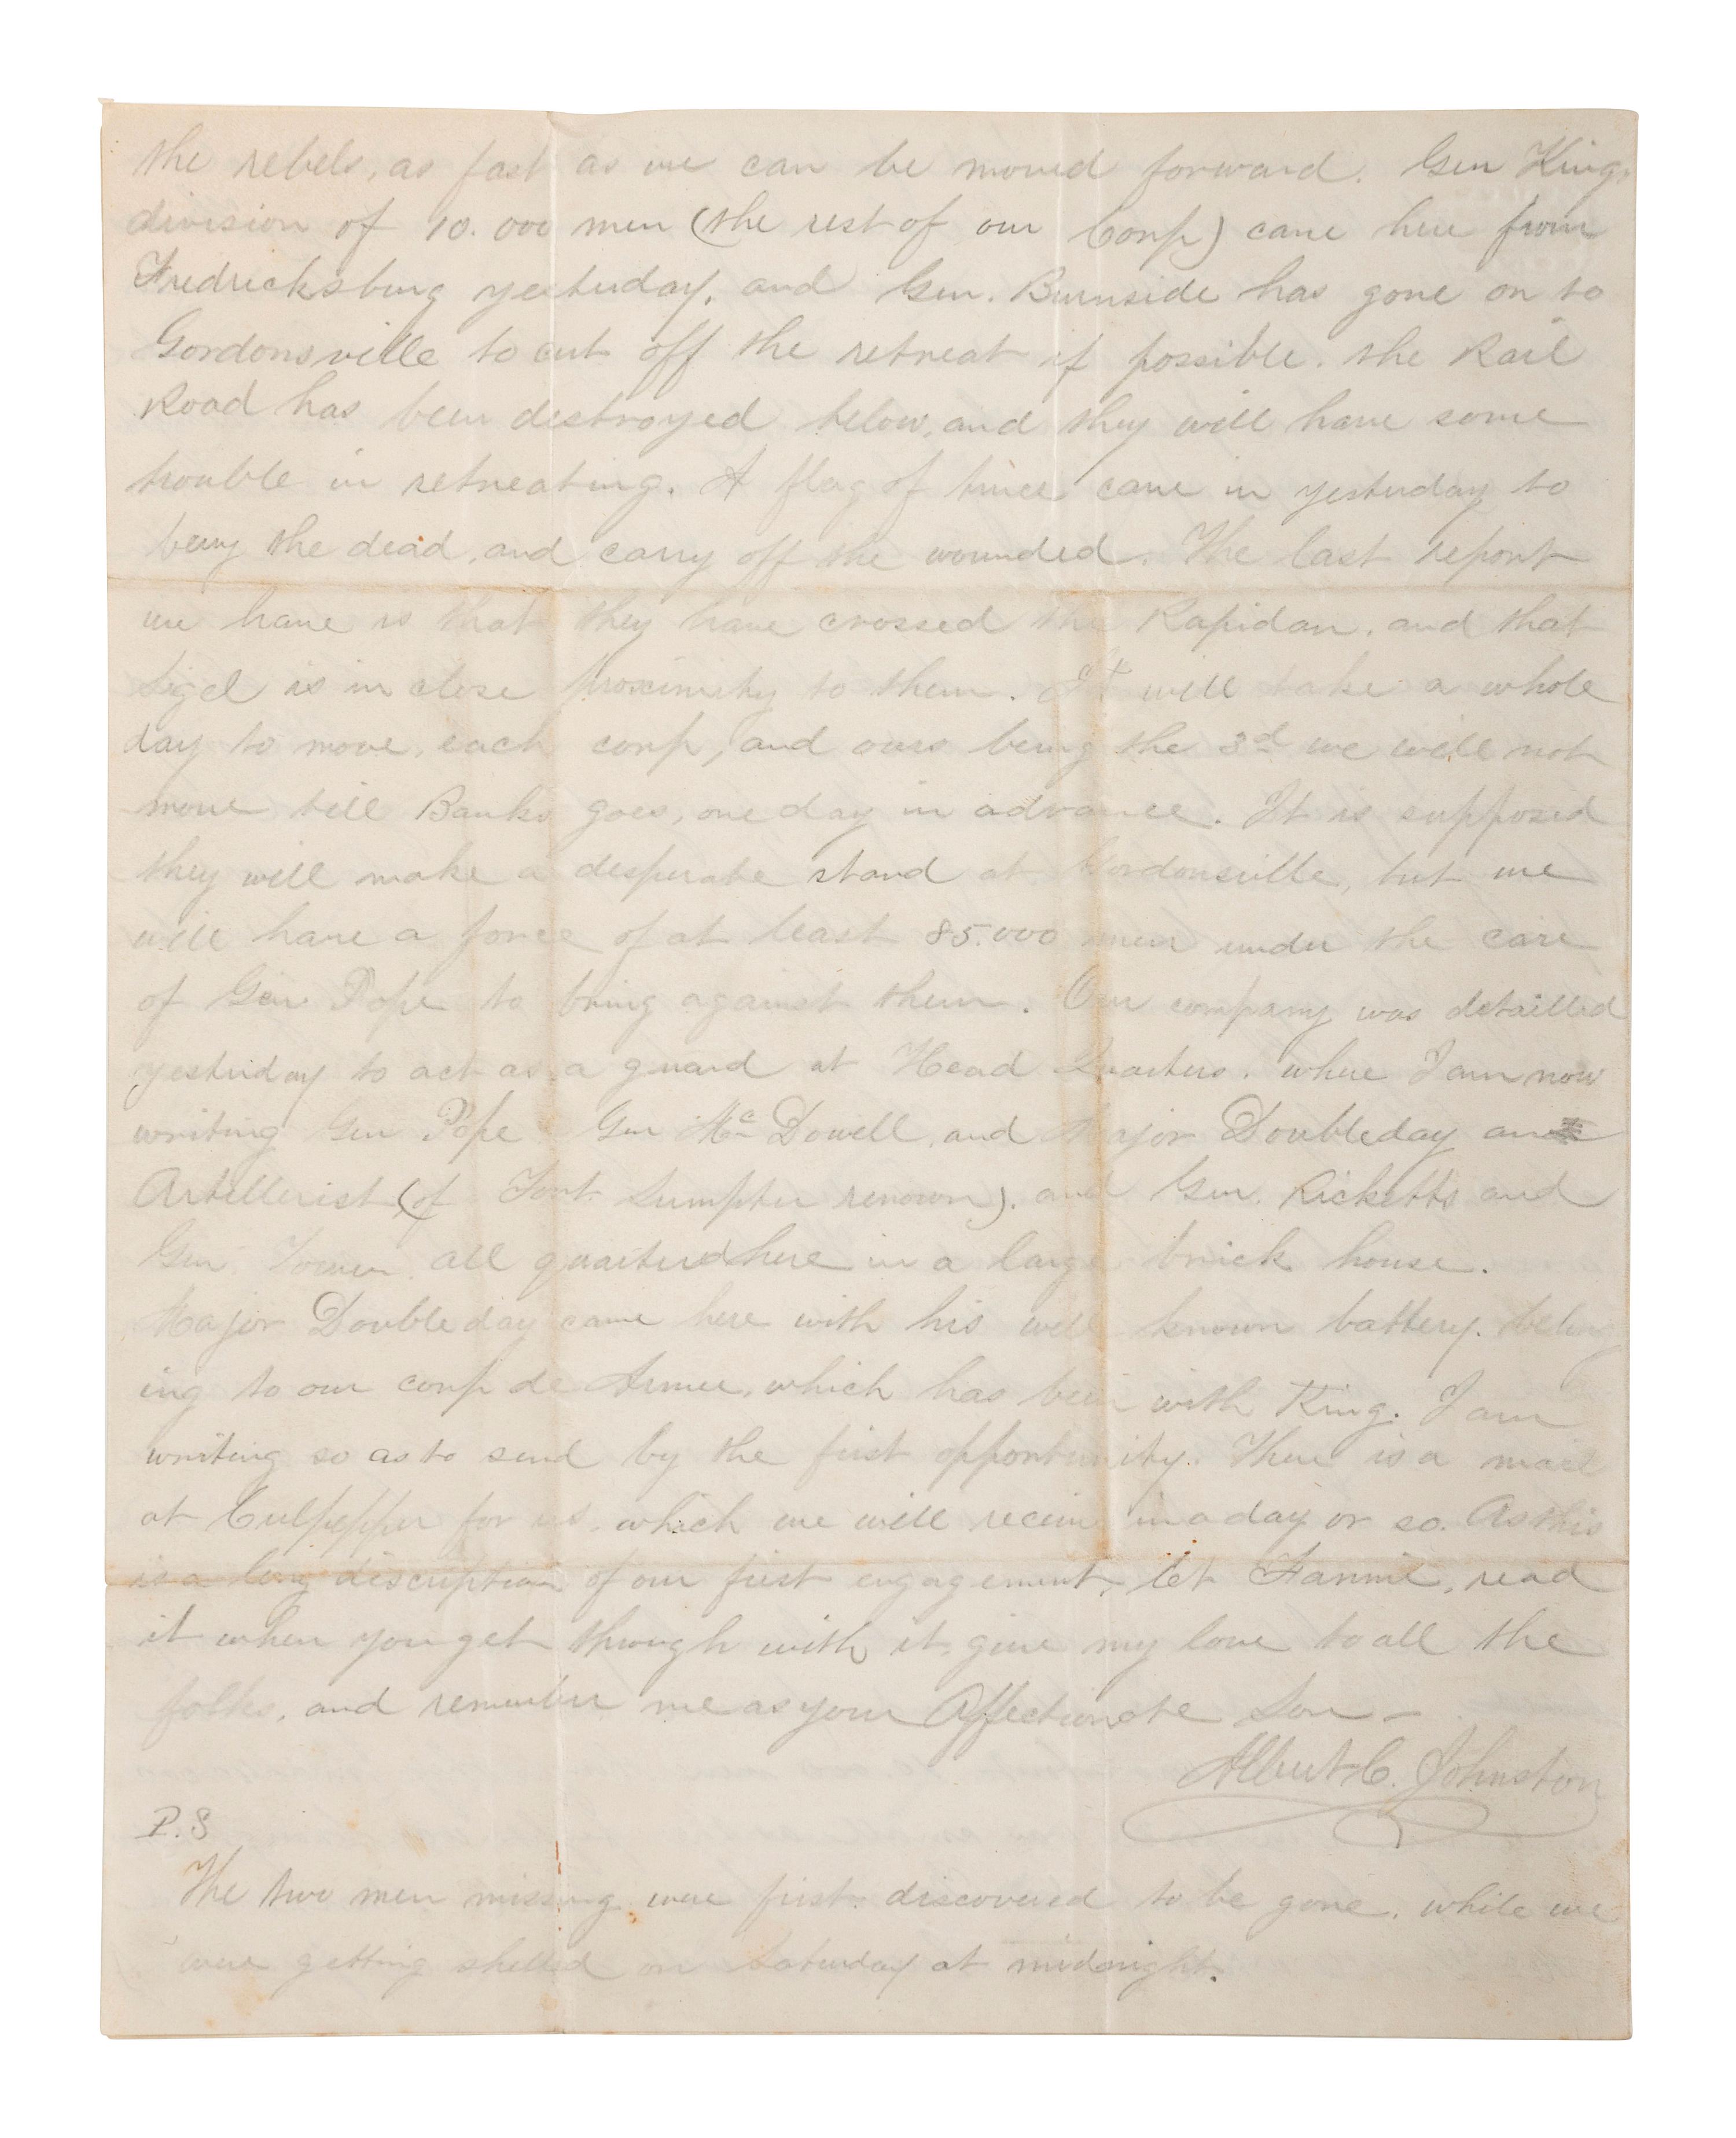 the rebels, as fast as we can be moved forward. Gen Kings
division of 10.000 men (the rest of our Corp) came here from
Fredricksburg yesterday, and Gen. Burnside has gone on to
Gordonsville to cut off the retreat if possible. the Rail
Road has been destroyed below, and they will have some
trouble in retreating. A flag of truce came in yesterday to
bury the dead, and carry off the wounded. The last report
we have is that they have crossed the Rapidan, and that
Sigel is in close proximity to them. It will take a whole
day to move, each corp, and ours being the 3d we will not
move till Banks goes, one day in advance. It is supposed
they will make a desperate stand at Gordonsville, but we
will have a force of at least 85.000 men under the care
of Gen Pope to bring against them. Our company was detailled
yesterday to act as a guard at Head Quarters. where I am now
writing Gen Pope Gen Mc Dowell, and Major Doubleday an
Artillerist (of Fort Sumpter renown). and Gen. Ricketts and
Gen Tower all quartered here in a large brick house.
Major Doubleday came here with his well known battery. belong
ing to our corp de Armee, which has been with King. I am
writing so as to send by the first opportunity. There is a mail
at Culpepper for us. which we will receive in a day or so. As this
is a long discription of our first engagement, let Fannie, read
it when you get through with it. give my love to all the
folks, and remember me as your Affectionate Son -
Albert C. Johnston
P.S
The two men missing were first discovered to be gone. while we
were getting shelled on Saturday at midnight.